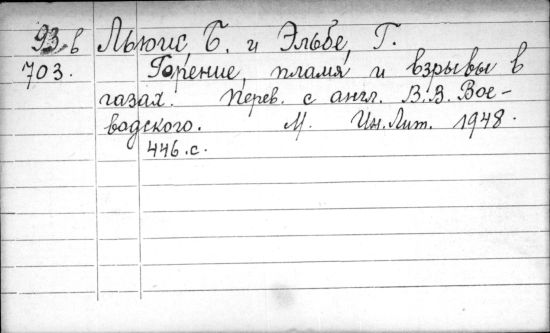 93 в Льюис, Б. и Эльбе, Г.
703. Горение, пламя и взрывы в
газах. Перев. с англ. В.В. Вое-
водского. М. Ин.Лит. 1948.
446.с.